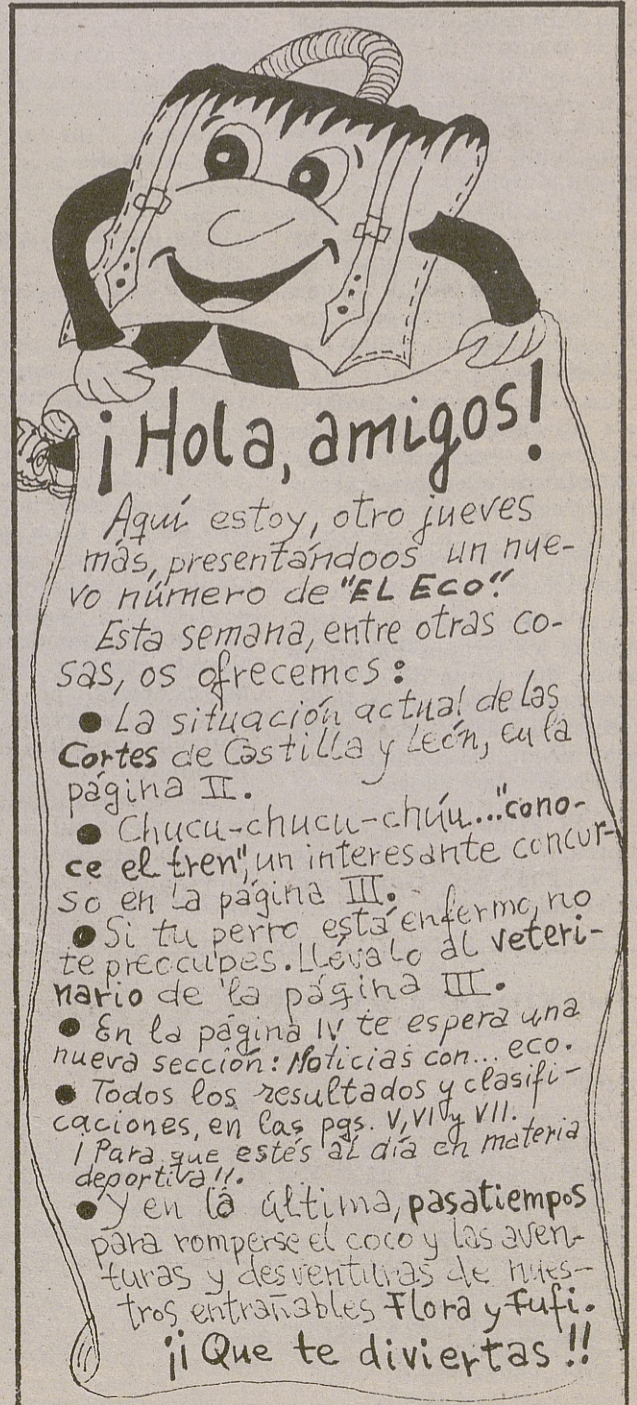 ¡Hola, amigos!
Aquí estoy, otro jueves
más, presentándoos un nue-
vo número de "EL ECO".
Esta semana, entre otras co-
sas, os ofrecemos:
● La situación actual de las
Cortes de Castilla y León, en la
página II.
● Chucu-chucu-chúu..."cono-
ce el tren", un interesante concur-
so en la página III.
● Si tu perro está enfermo, no
te preocupes. Llévalo al veteri-
nario de la página III.
● En la página IV te espera una
nueva sección: Noticias con... eco.
● Todos los resultados y clasifi-
caciones, en las pgs. V, VI y VII.
¡Para que estés al día en materia
deportiva!!.
● Y en la última, pasatiempos
para romperse el coco y las aven-
turas y desventuras de nues-
tros entrañables Flora y Fufi.
¡¡Que te diviertas!!